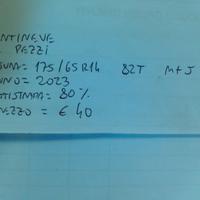 NTINEVE
PEZZI
SURA= 175/65 R14 82T M+S
NNO= 2023
TTISTRADA= 80%
REZZO= € 40